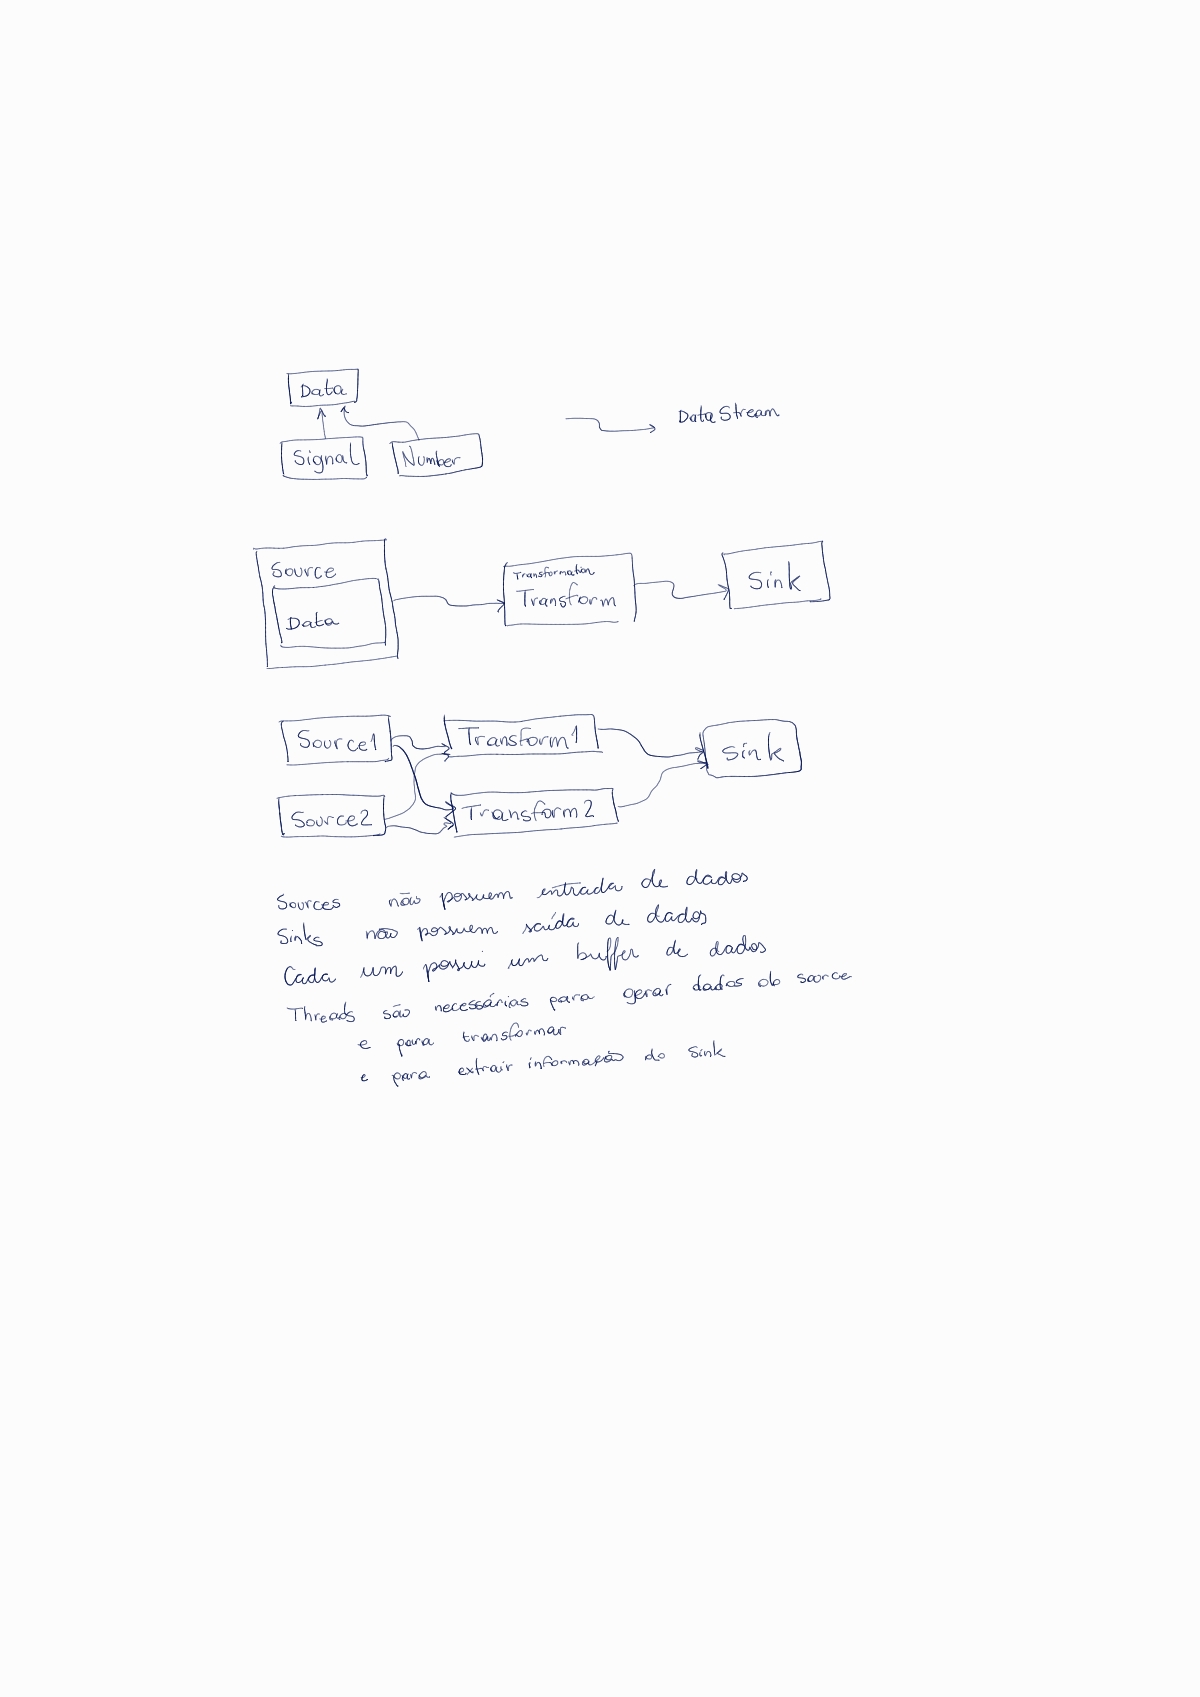 Data
Signal
Number
Data Stream
Source
Data
Transformation
Transform
Sink
Source1
Transform1
Sink
Source2
Transform2
Sources não possuem entrada de dados
Sinks não possuem saída de dados
Cada um possui um buffer de dados
Threads são necessárias para gerar dados do source
e para transformar
e para extrair informação do sink